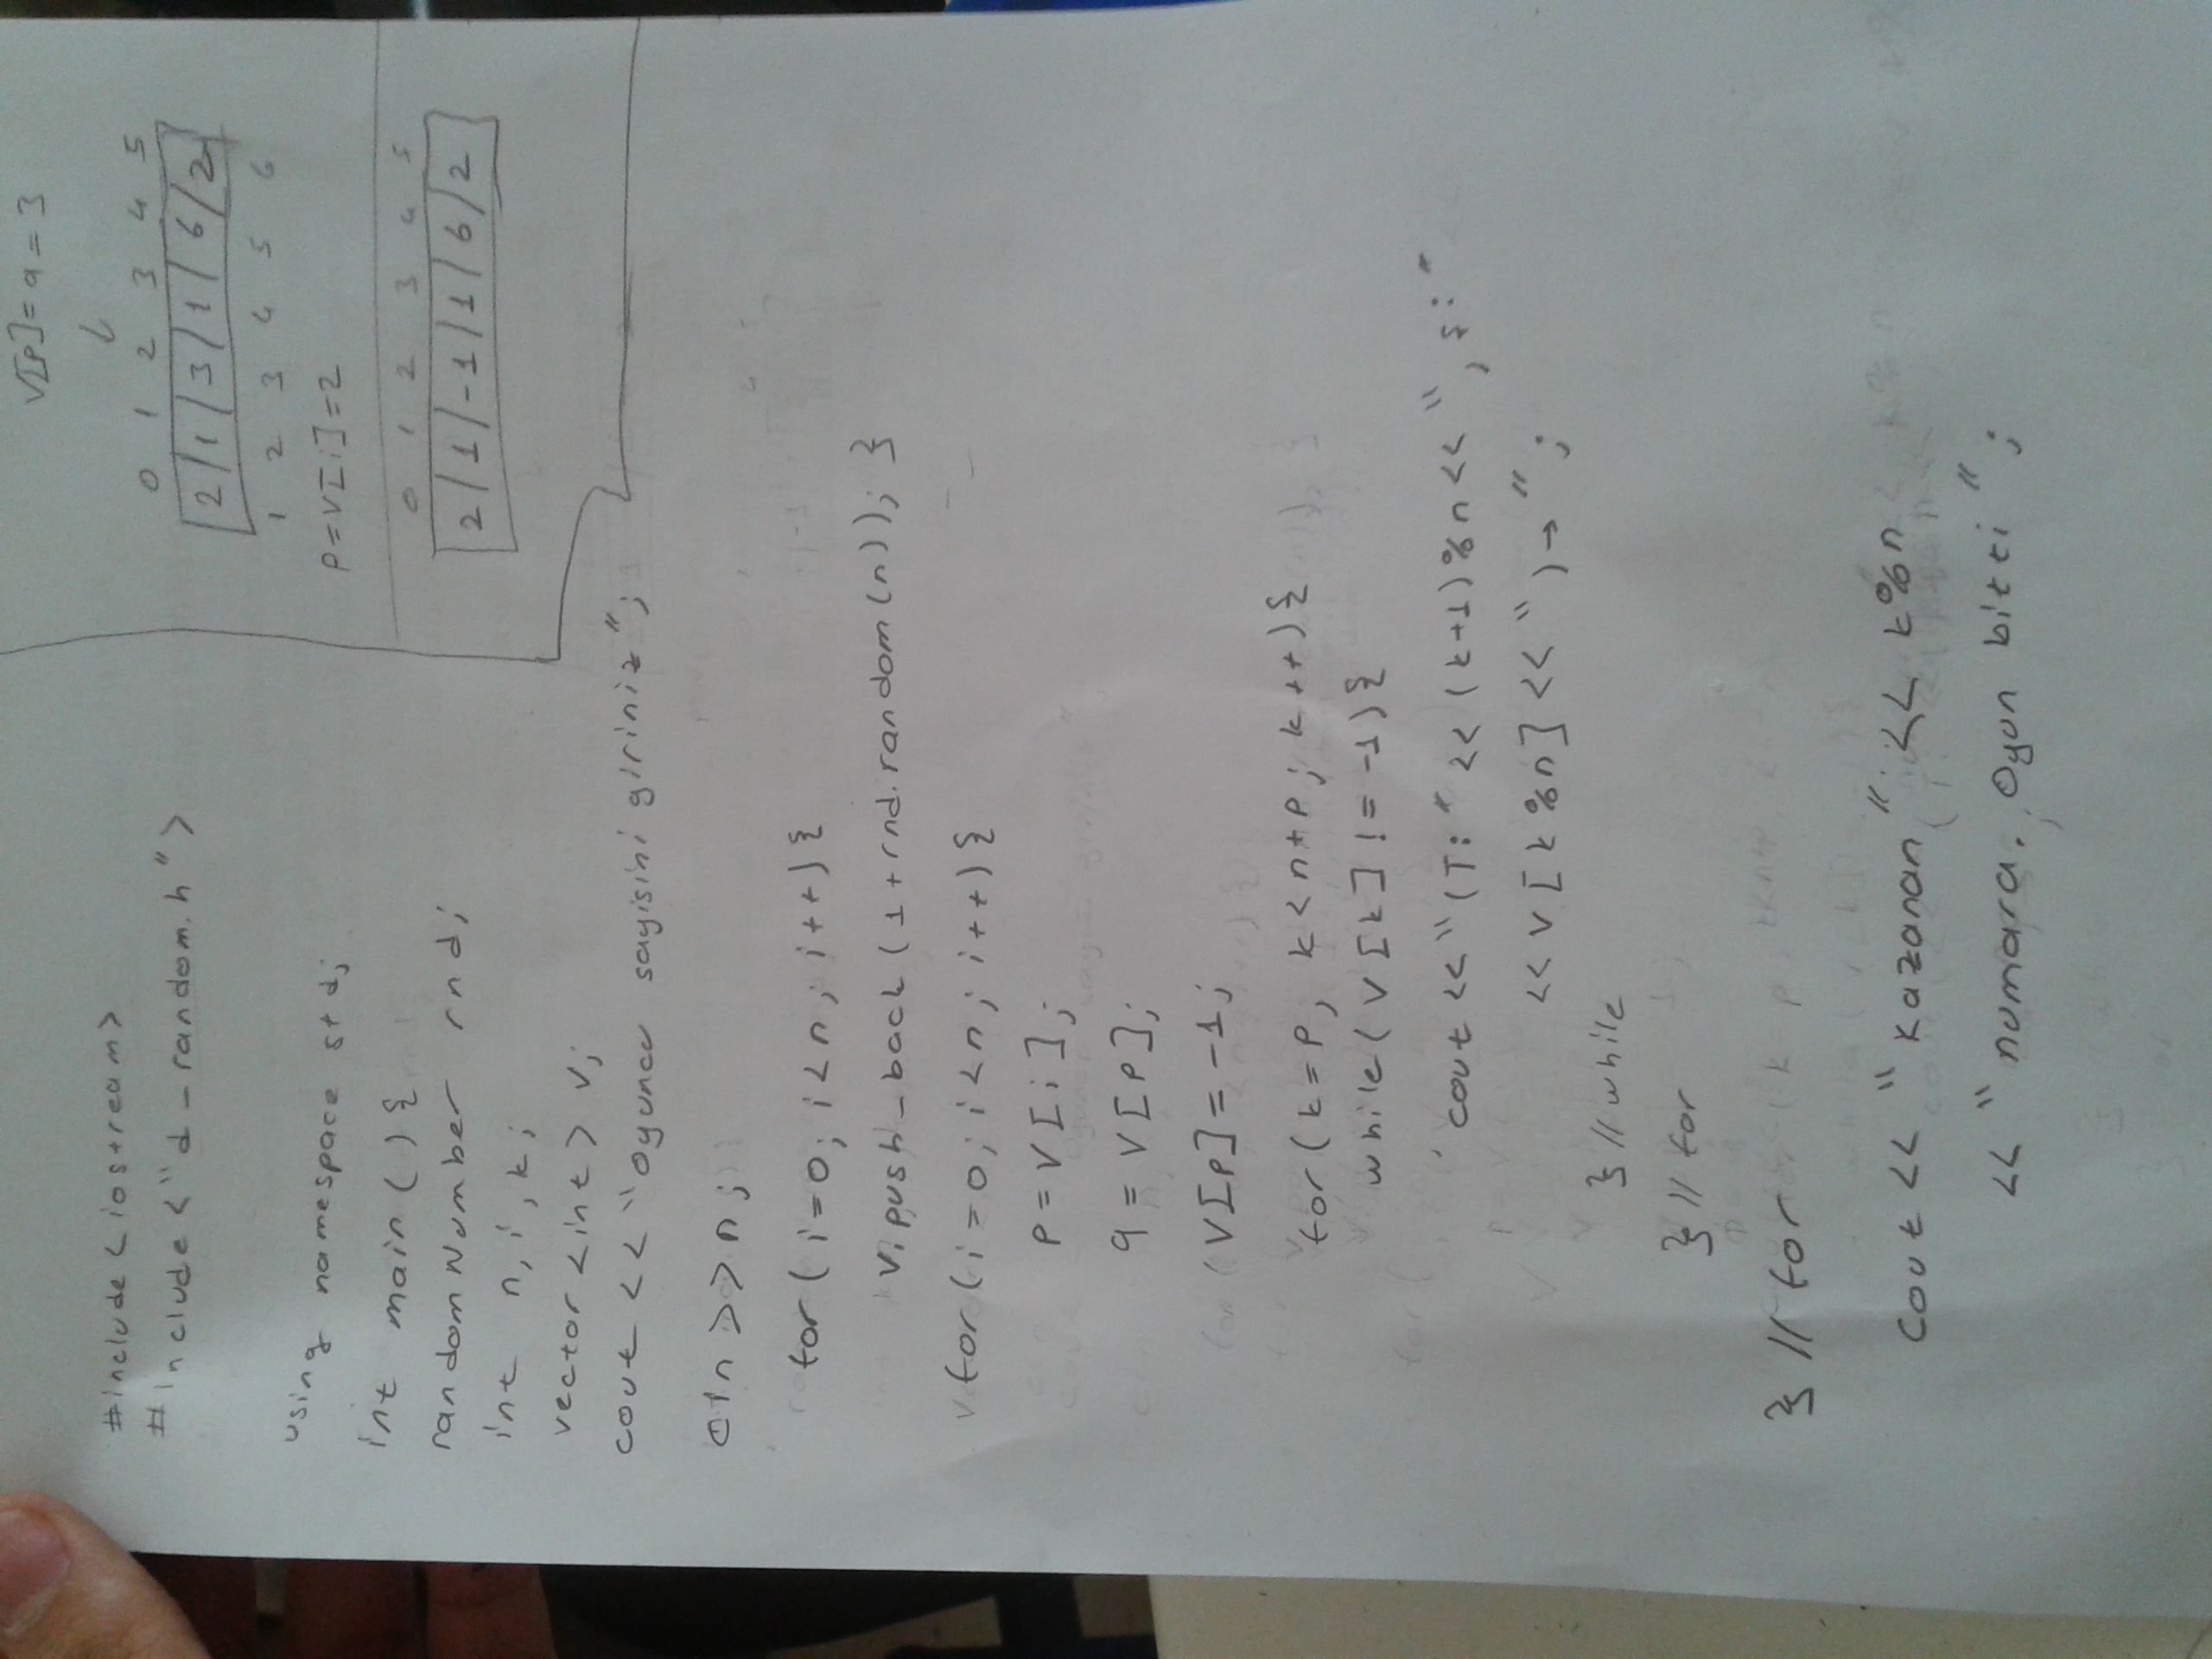 #include <iostream>
#include <"d_random.h">
using namespace std;
int main () {
randomNumber rnd;
int n, i, k;
vector <int> v;
cout << "oyuncu sayisini giriniz";
cin >> n;
for ( i=0; i<n; i++) {
v.push_back (1+rnd.random(n)); }
for (i=0; i<n; i++) {
p = v[i];
q = v[p];
v[p] = -1;
for (k=p, k<n+p; k++) {
while ( v[k] != -1) {
cout << "(T:" << (k+1)%n << ", s:"
<< v[k%n] << ")→";
} // while
} // for
} // for
cout << "kazanan" << k%n
<< "numara. Oyun bitti";
v[p] = q = 3
↓
0 1 2 3 4 5
2 | 1 | 3 | 1 | 6 | 2
1 2 3 4 5 6
p=v[i]=2
0 1 2 3 4 5
2 | 1 | -1 | 1 | 6 | 2